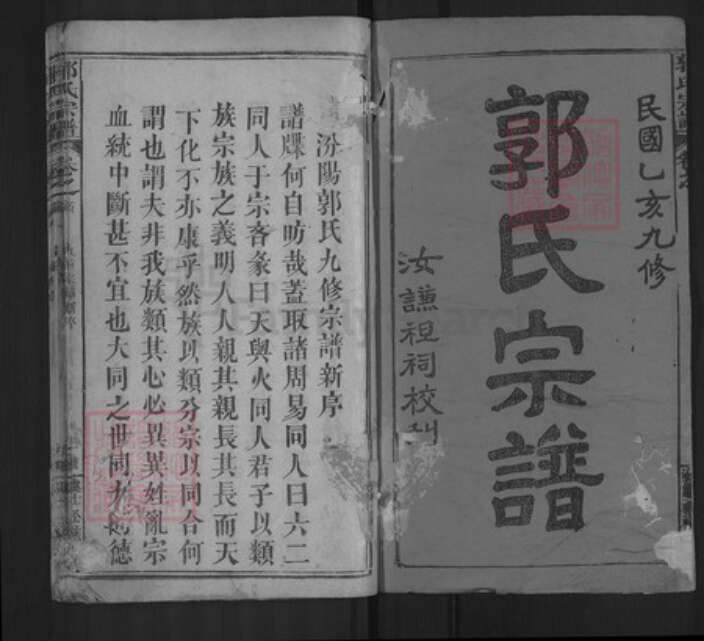 民國乙亥九修
郭氏宗譜
汝謙祖祠校刋
汾陽郭氏九修宗譜新序
譜牒何自昉哉蓋取諸周易同人曰六二
同人于宗吝彖曰天與火同人君子以類
族宗族之義明人人親其親長其長而天
下化不亦康乎然族以類分宗以同合何
謂也謂夫非我族類其心必異異姓亂宗
血統中斷甚不宜也大同之世同
德
郭氏宗譜
卷之